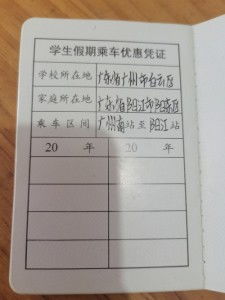 学生假期乘车优惠凭证
学校所在地 广东省广州市白云区
家庭所在地 广东省阳江市阳东区
乘车区间 广州南站至阳江站
20 年 20 年